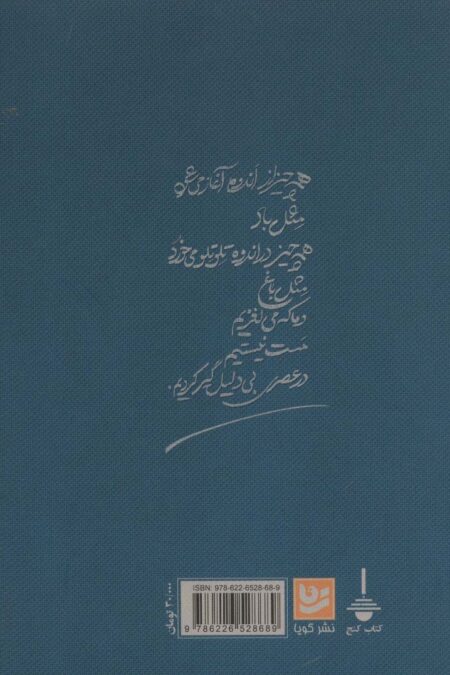 همه چیز از اندوه آغاز می‌شود
مثل باد
همه چیز در اندوه تلوتلو می‌خورد
مثل باغ
و ما که می‌لغزیم
مست نیستیم
در عصری بی‌دلیل گیر کردیم.
کتاب کنج
نشر گویا
ISBN: 978-622-6528-68-9
9 786226 528689
۳۰,۰۰۰ تومان